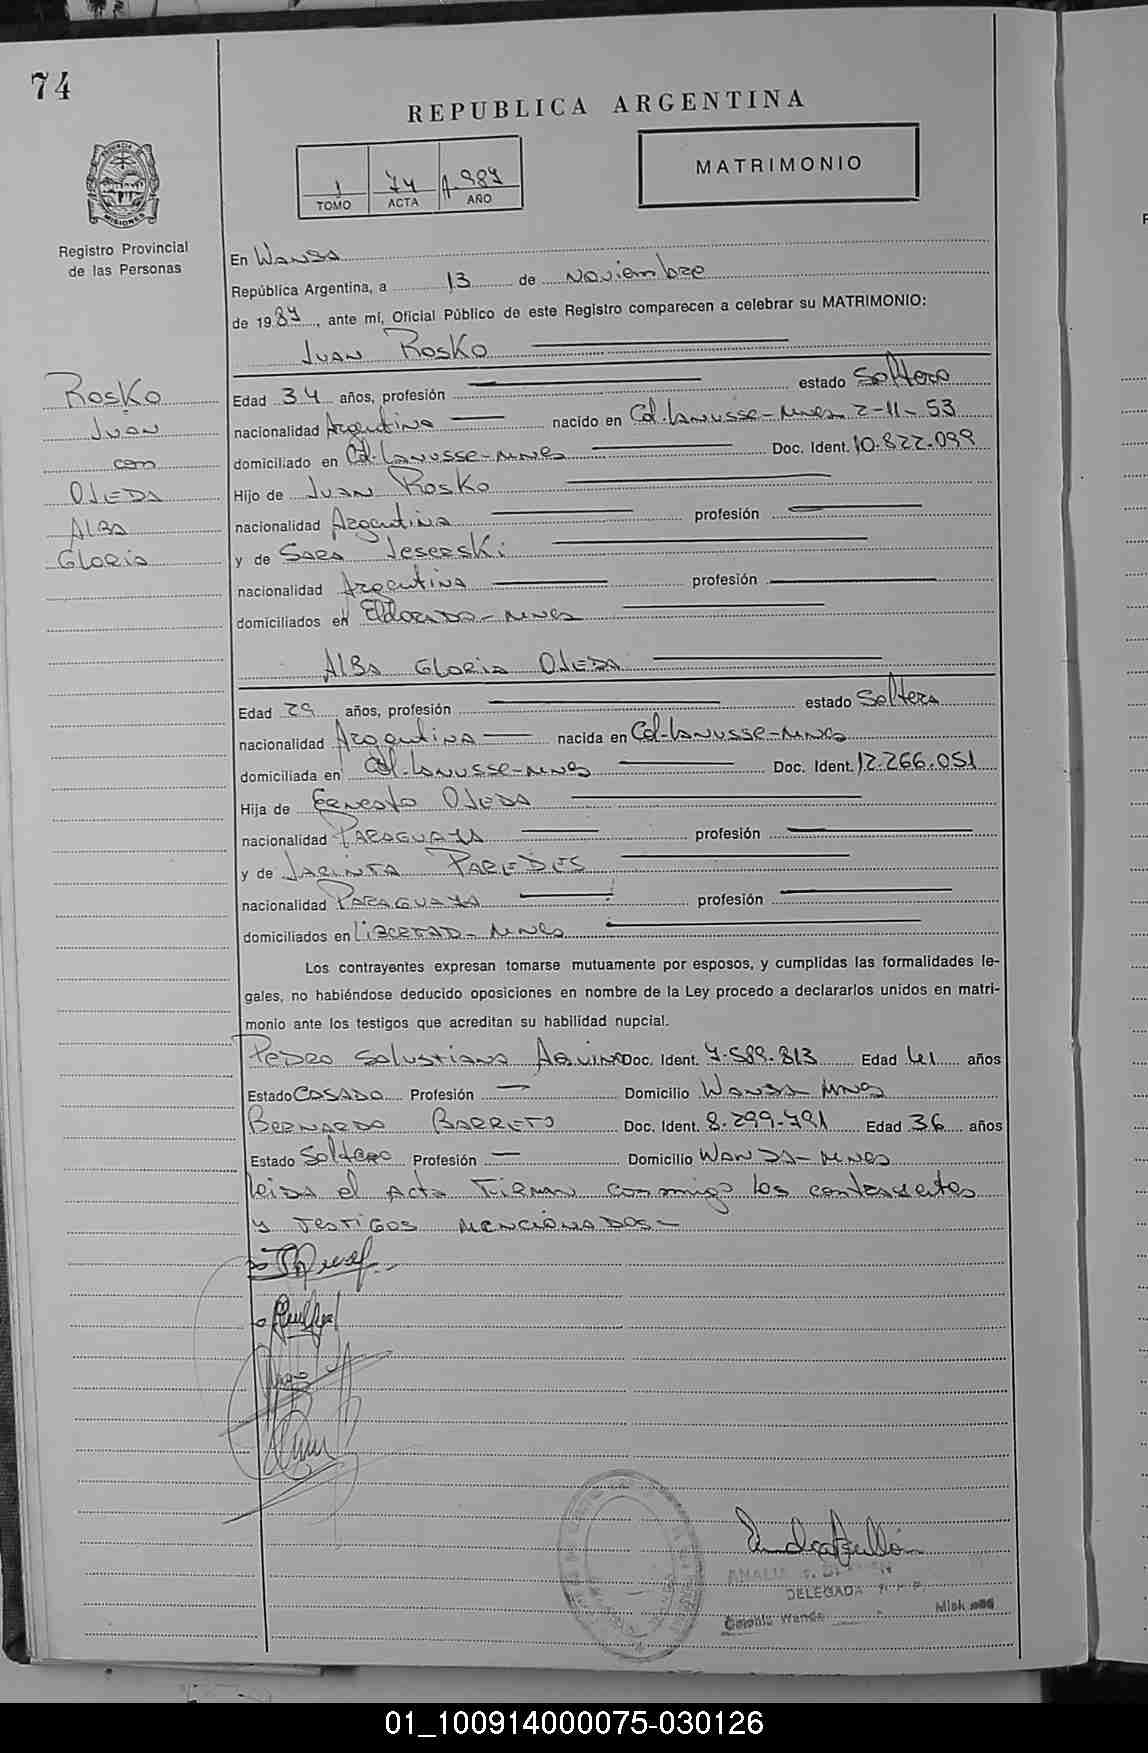 74
REPUBLICA ARGENTINA
MATRIMONIO
1 74 1.987
TOMO ACTA AÑO
Registro Provincial
de las Personas
En Wanda
República Argentina, a 13 de Noviembre
de 1987, ante mí, Oficial Público de este Registro comparecen a celebrar su MATRIMONIO:
Juan Rosko
Rosko
Juan
con
OJEDA
ALBA
Gloria
Edad 34 años, profesión estado Soltero
nacionalidad Argentina nacido en Col-Lanusse-Mnes 2-11-53
domiciliado en Col-Lanusse-Mnes Doc. Ident. 10.822.099
Hijo de Juan Rosko
nacionalidad Argentina profesión
y de Sara Jeserski
nacionalidad Argentina profesión
domiciliados en Eldorado-Mnes
ALBA GLORIA OJEDA
Edad 29 años, profesión estado Soltera
nacionalidad Argentina nacida en Col-Lanusse-Mnes
domiciliada en Col-Lanusse-Mnes Doc. Ident. 12.266.051
Hija de Ernesto OJEDA
nacionalidad PARAGUAYA profesión
y de JACINTA PAREDES
nacionalidad PARAGUAYA profesión
domiciliados en Libertad-Mnes
Los contrayentes expresan tomarse mutuamente por esposos, y cumplidas las formalidades le-
gales, no habiéndose deducido oposiciones en nombre de la Ley procedo a declararlos unidos en matri-
monio ante los testigos que acreditan su habilidad nupcial.
Pedro Salustiano Aquino Doc. Ident. 7.589.813 Edad 41 años
Estado CASADO Profesión — Domicilio Wanda-Mnes
Bernardo BARRETO Doc. Ident. 8.299.791 Edad 36 años
Estado Soltero Profesión — Domicilio Wanda-Mnes
Leida el Acta Firman conmigo los contrayentes
y Testigos mencionados-
DELEGADA
Colonia Wanda
01_100914000075-030126